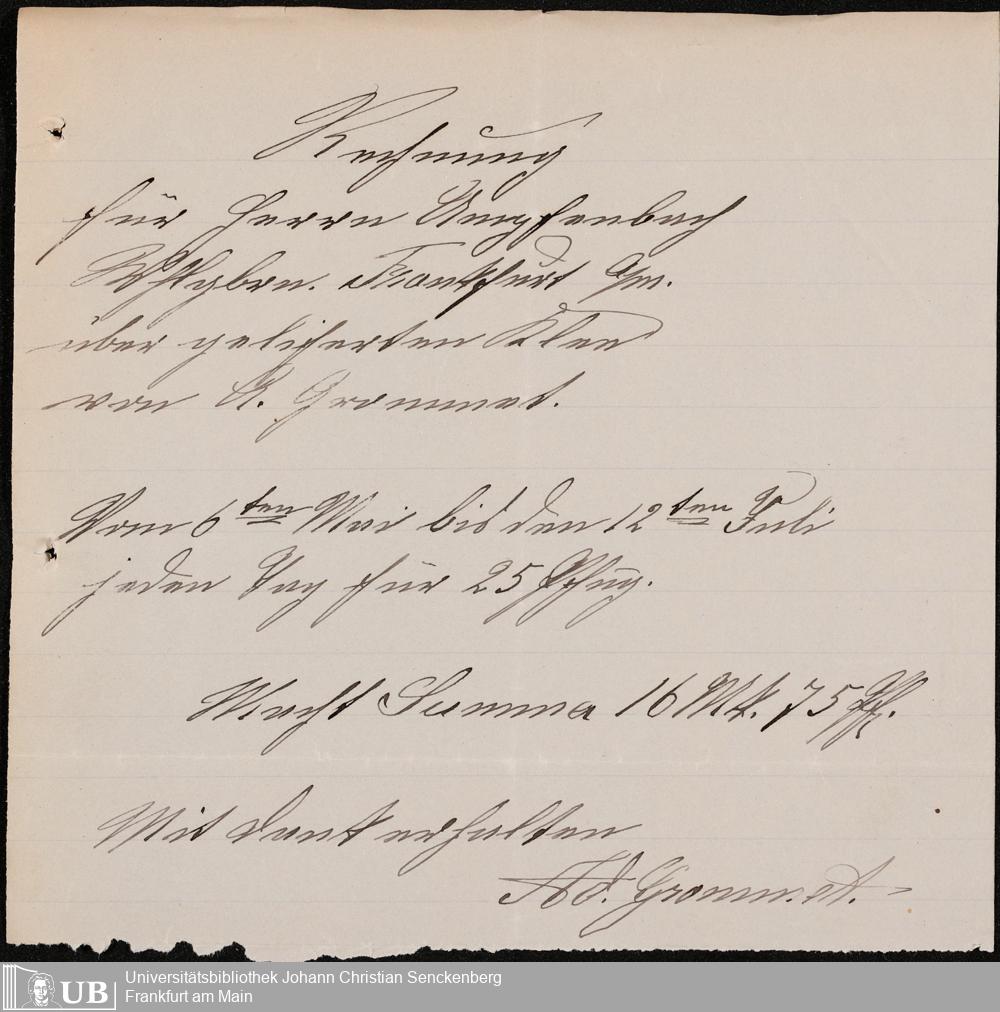 Rechnung
für Herrn Ampfenbach
Frankfurt
über geliferten Klee
von A. Grommet.
Vom 6ten Mai bis den 12ten Juli
jeden Tag für 25 Pfug.
Macht Summa 16 Mk. 75 Pf.
Mit dank erhalten
Ad. Grommet.
UB Universitätsbibliothek Johann Christian Senckenberg
Frankfurt am Main